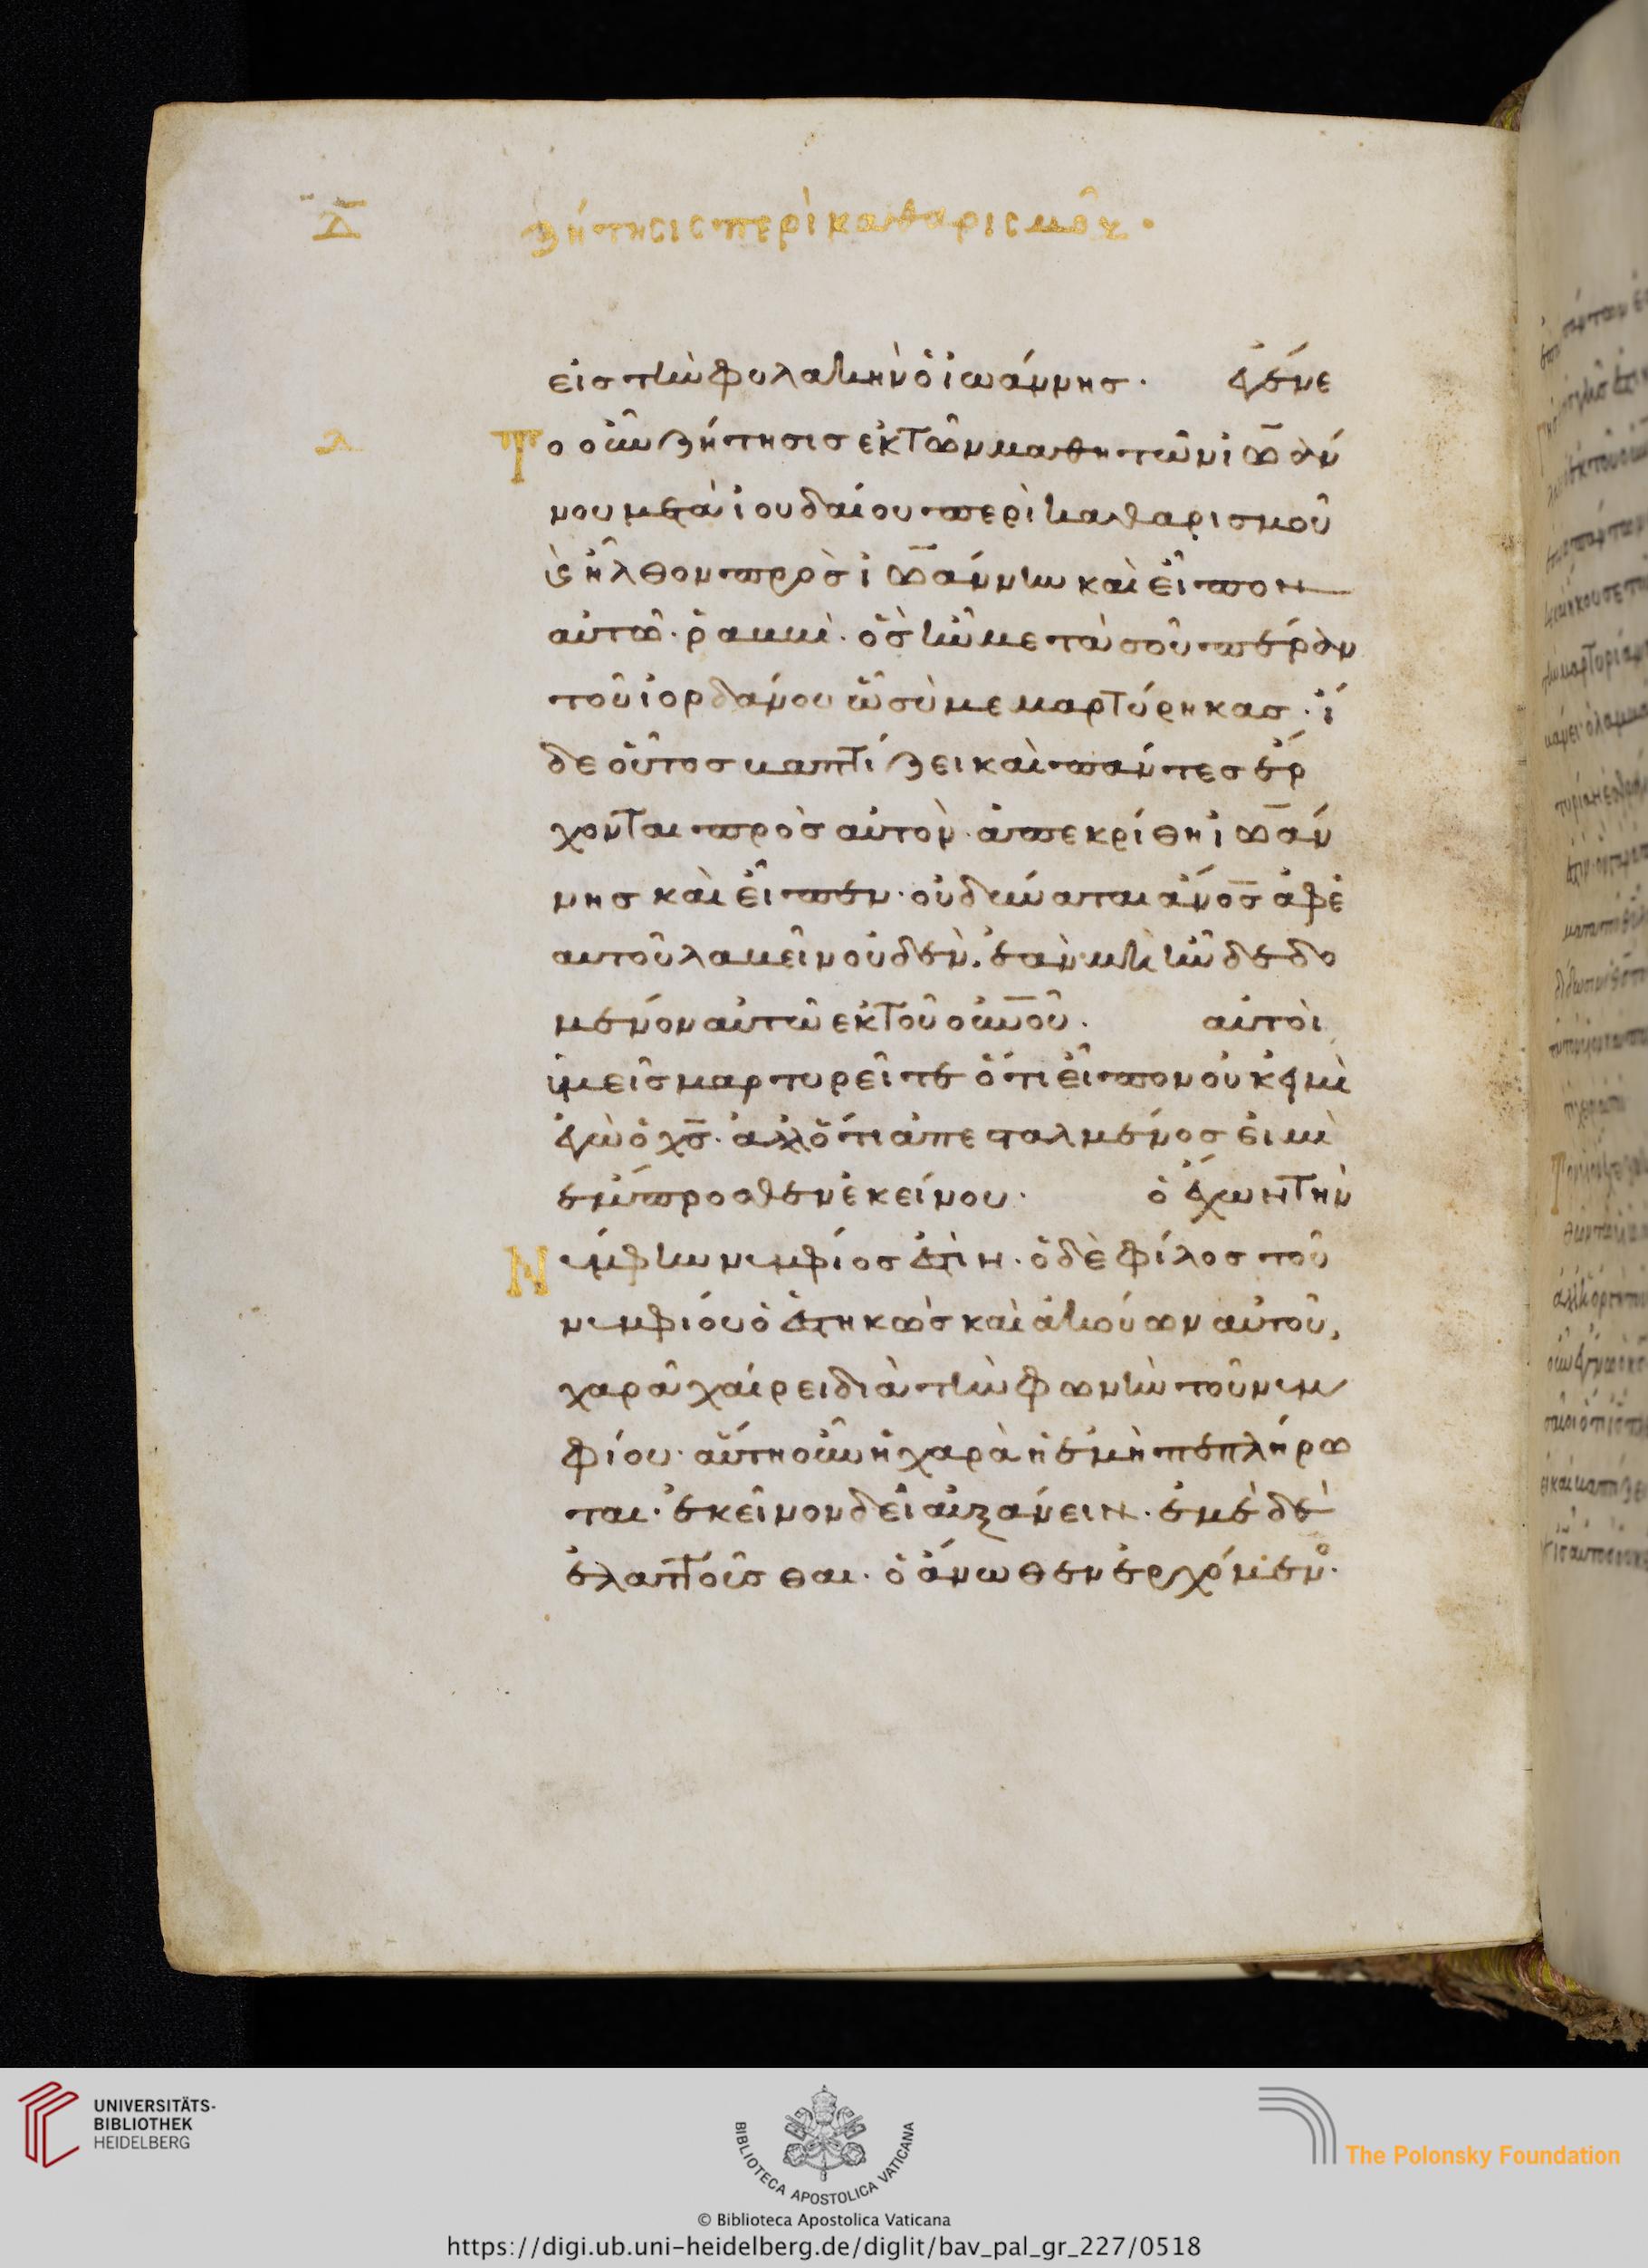 Δ̅ ζήτησις περὶ καθαρισμοῦ·
εἰσ τὴν φυλακὴν ὁ ἰωάννησ· ἐγένε
λ Το οὖν ζήτησισ ἐκ τῶν μαθητῶν ἰω̅άν
νου μετὰ ἰουδαίου περὶ καθαρισμοῦ
ἐξῆλθον πρὸσ ἰω̅άννην καὶ εἶπον
αὐτῶ· ῥαββὶ· ὃσ ἦν μετὰ σοῦ πέραν
τοῦ ἰορδάνου ὧ σὺ μεμαρτύρηκασ· ἴ
δε οὗτοσ βαπτίζει καὶ πάντεσ ἔρ
χονται πρὸσ αὐτὸν· ἀπεκρίθη ἰω̅άν
νησ καὶ εἶπεν· οὐ δύναται ἄνο̅σ ἀφἐ
αυτοῦ λαβεῖν οὐδὲν. ἐὰν μὴ ἦν δεδο
μένον αὐτῶ ἐκ τοῦ οὐν̅οῦ. αὐτοὶ
ὑμεῖσ μαρτυρεῖτε ὅτι εἶπον οὐκ εἰμὶ
ἐγὼ ὁ χ̅σ̅· ἀλλ' ὅτι ἀπεσταλμένοσ εἰμὶ
ἔμπροσθεν ἐκείνου· ὁ ἔχων τὴν
Νύμφην νυμφίοσ ἐστὶν· ὁ δὲ φίλοσ τοῦ
νυμφίου ὁ ἑστηκὼσ καὶ ἀκούων αὐτοῦ,
χαρᾶ χαίρει διὰ τὴν φωνὴν τοῦ νυμ
φίου· αὕτη οὖν ἡ χαρὰ ἡ ἐμὴ πεπλήρω
ται· ἐκεῖνον δεῖ αὐξάνειν· ἐμὲ δὲ
ἐλαττοῦσθαι· ὁ ἄνωθεν ἐρχόμεν<sup>ο</sup>·
UNIVERSITÄTS-
BIBLIOTHEK
HEIDELBERG
BIBLIOTECA APOSTOLICA VATICANA
The Polonsky Foundation
© Biblioteca Apostolica Vaticana
https://digi.ub.uni-heidelberg.de/diglit/bav_pal_gr_227/0518